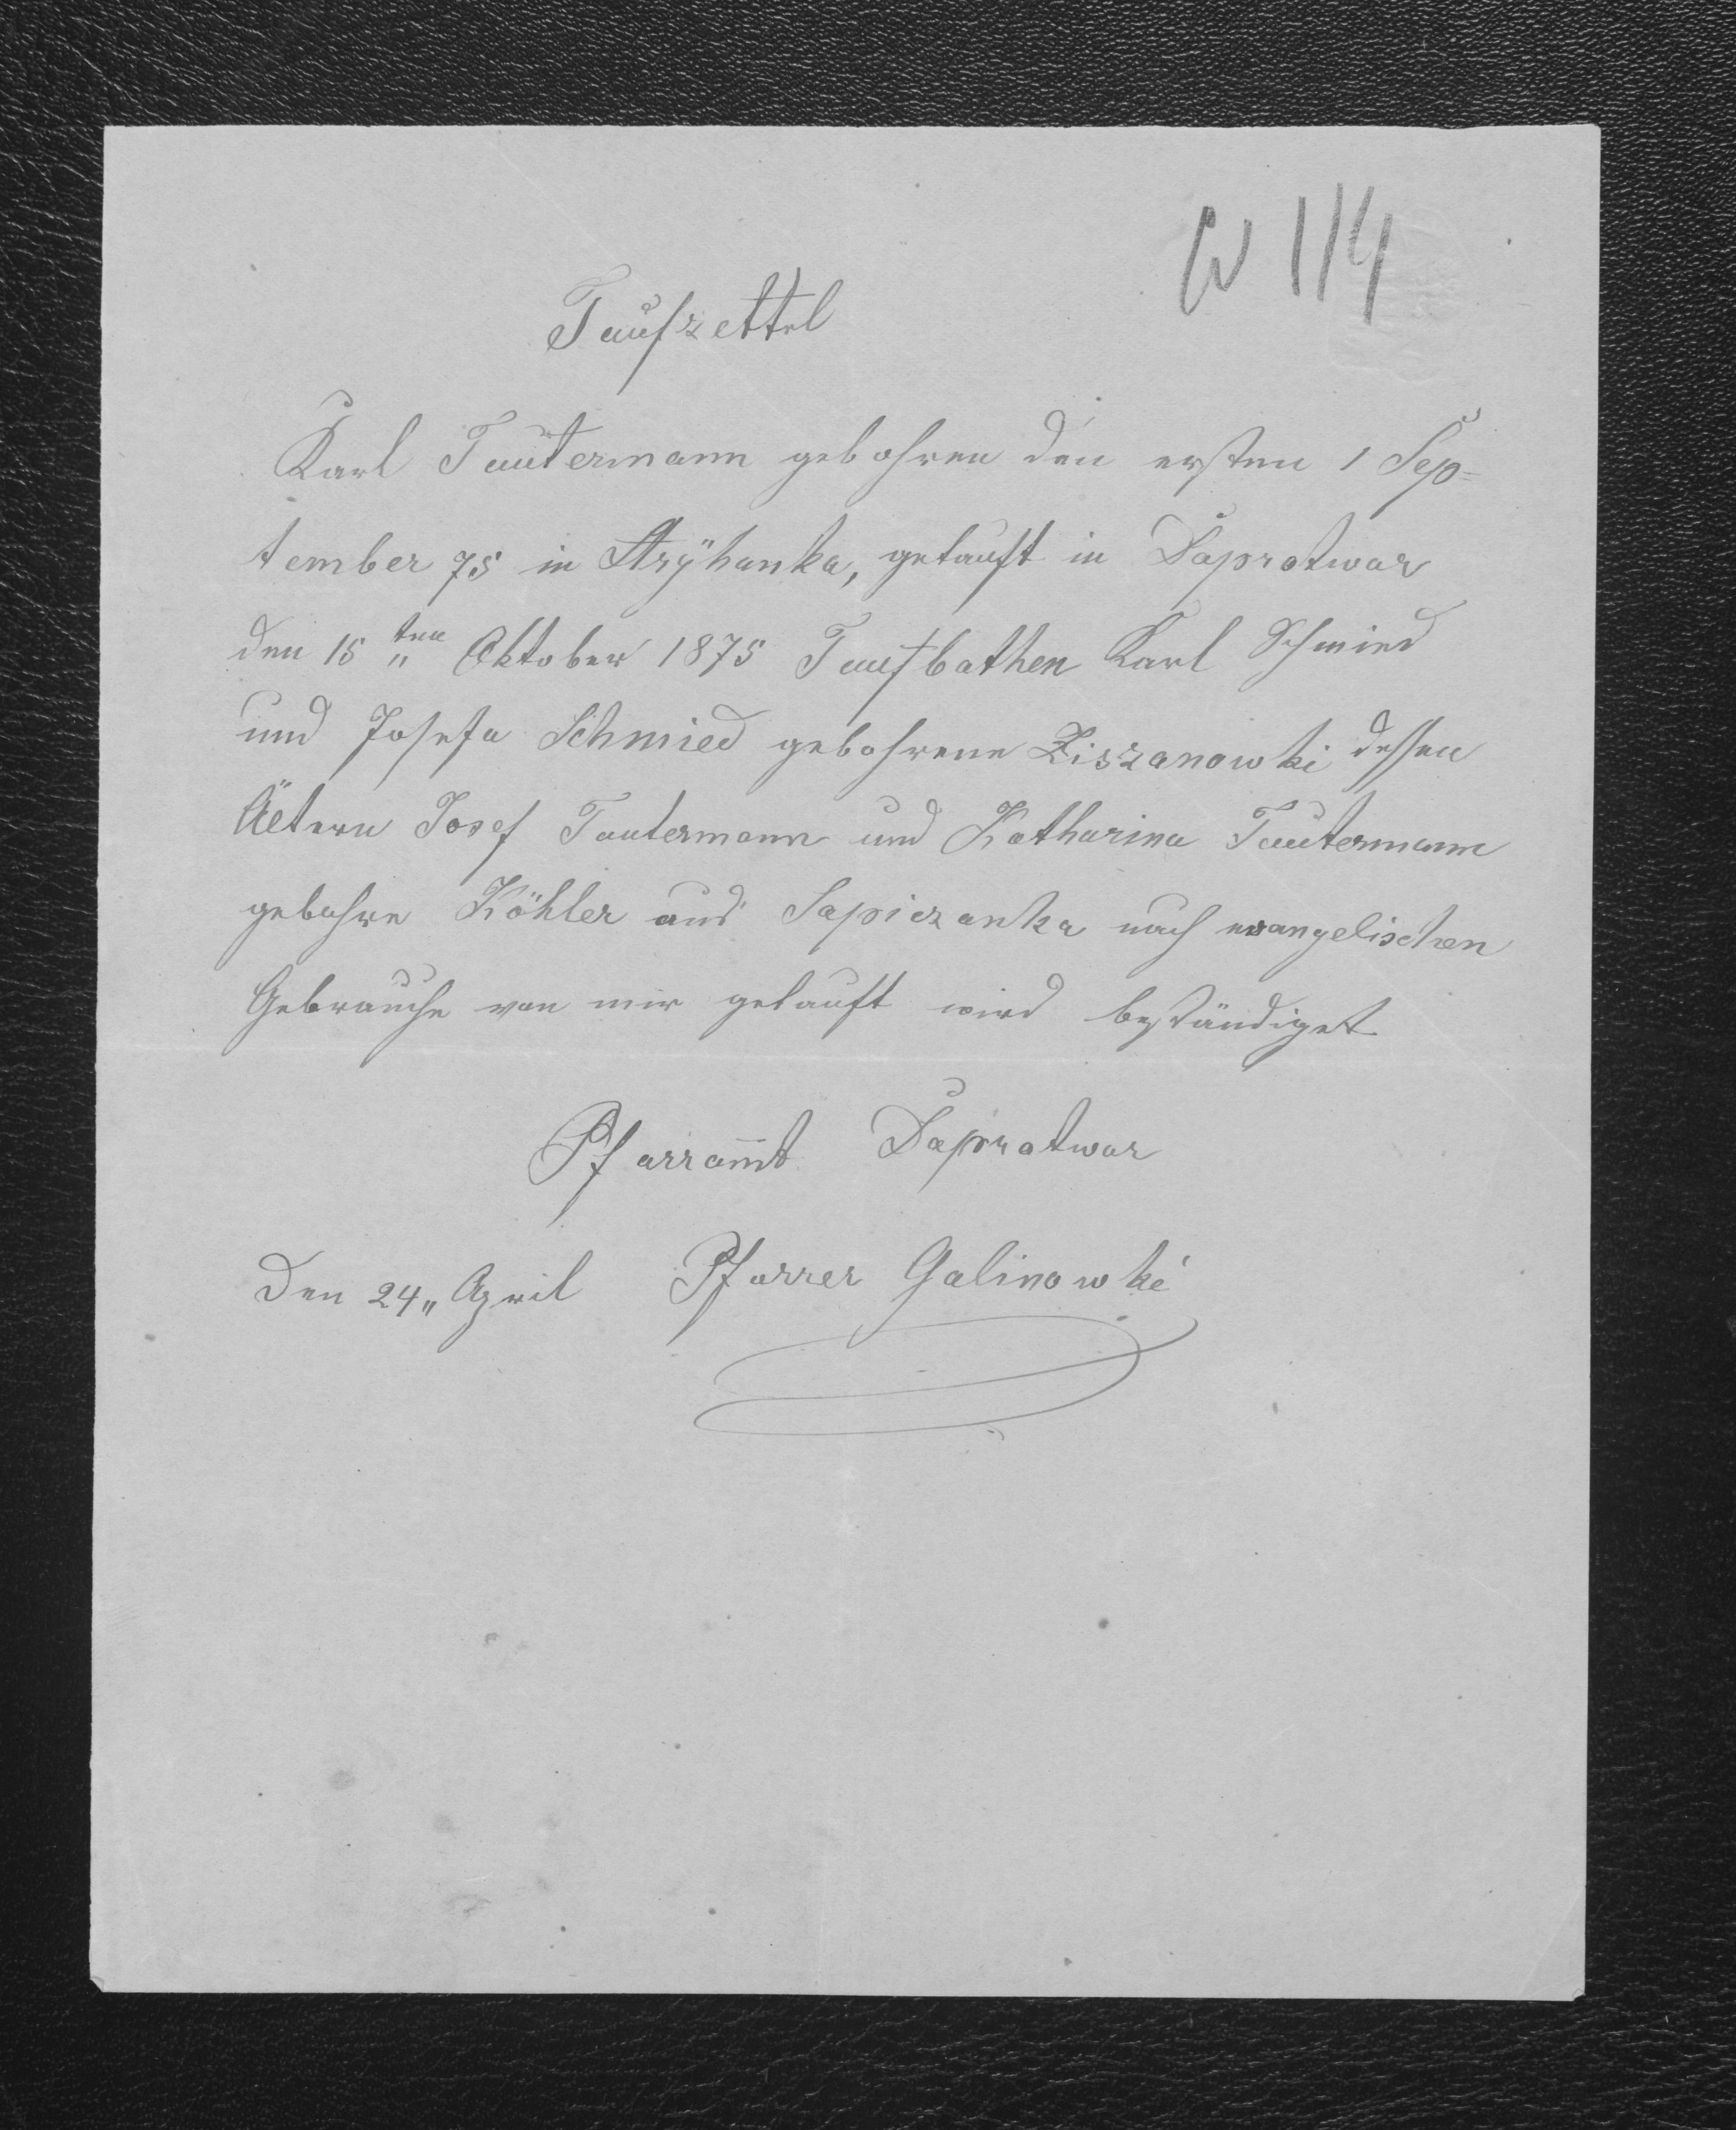 W 114
Taufzettel
Karl Tautermann gebohren den ersten 1 Sep-
tember 75 in Aryhanka, getauft in Dapratwar
den 15ten Oktober 1875 Taufbathen Karl Schmied
und Josefa Schmied gebohrene Ziszanowki dessen
Ältern Josef Tautermann und Katharina Tautermann
gebohre Köhler aus Sapiezanka nach ewangelischen
Gebrauche von mir getauft wird beständiget
Pfarramt Dapratwar
Den 24„ April Pfarrer Galinowki